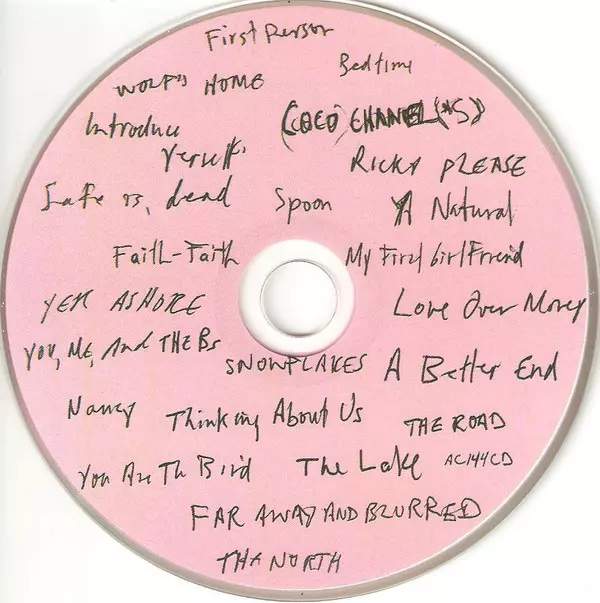 First Person
Bedtime
WOLF'S HOME
Introduce
Yerself.
(COCO) CHANEL (*5)
RICKY PLEASE
Safe is, dead
Spoon
A Natural
Faith-Faith
My First Girlfriend
YER ASHORE
Love Over Money
YOU, ME, And THE Bs
SNOWFLAKES
A Better End
Nancy
Thinking About Us
THE ROAD
You Are Th Bird
The Lake
AC144CD
FAR AWAY AND BLURRED
THA NORTH